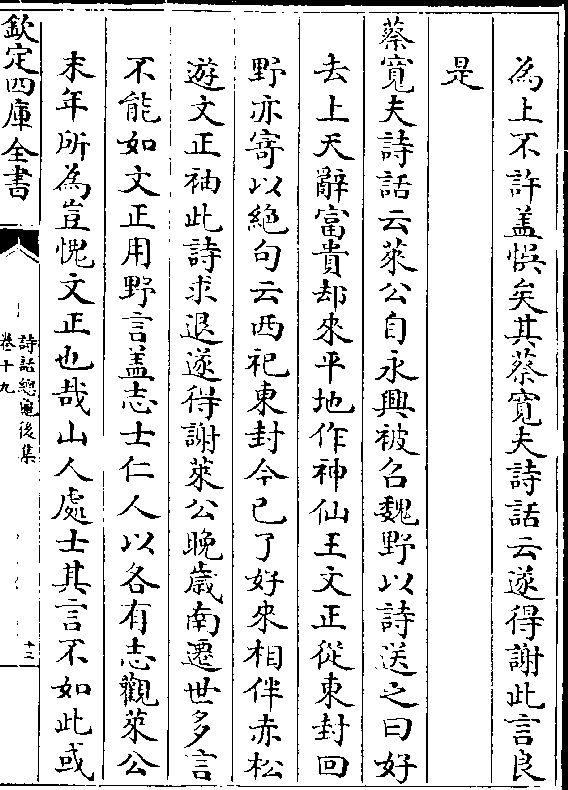 為上不許盖悞矣其蔡寛夫詩話云遂得謝此言良
是
蔡寛夫詩話云萊公自永興被召魏野以詩送之曰好
去上天辭富貴却來平地作神仙王文正從東封回
野亦寄以絶句云西祀東封今已了好來相伴赤松
遊文正袖此詩求退遂得謝萊公晚歲南遷世多言
不能如文正用野言盖志士仁人以各有志觀萊公
末年所為豈愧文正也哉山人處士其言不如此或
欽定四庫全書
詩話總龜後集
卷十九
十三